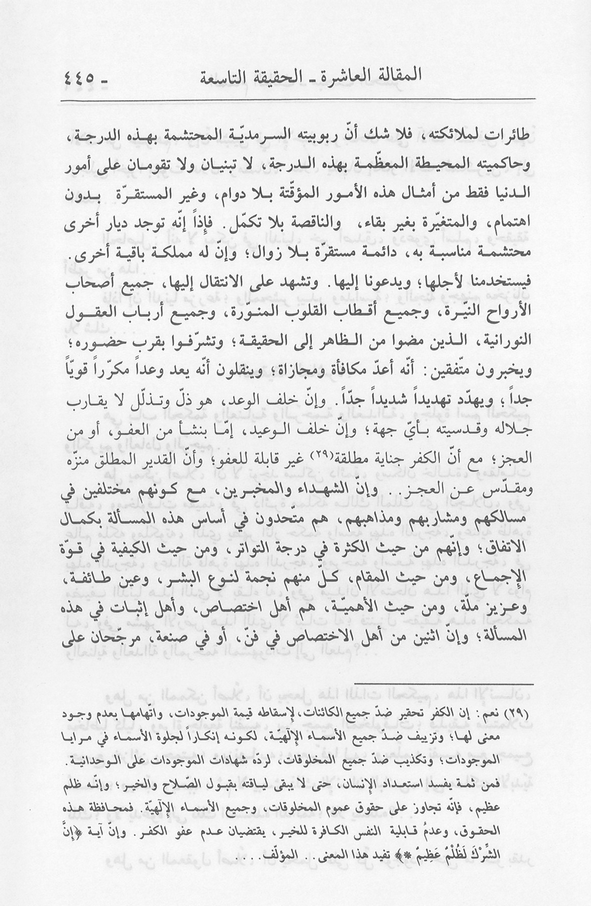 المقالة العاشرة ـ الحقيقة التاسعة ـ ٤٤٥
طائرات لملائكته، فلا شك أنّ ربوبيته السرمديّة المحتشمة بهذه الدرجة،
وحاكميته المحيطة المعظّمة بهذه الدرجة، لا تبنيان ولا تقومان على أمور
الدنيا فقط من أمثال هذه الأمور المؤقّتة بلا دوام، وغير المستقرّة بدون
اهتمام، والمتغيّرة بغير بقاء، والناقصة بلا تكمّل. فإذاً إنّه توجد ديار أخرى
محتشمة مناسبة به، دائمة مستقرّة بلا زوال؛ وإنّ له مملكة باقية أخرى.
فيستخدمنا لأجلها؛ ويدعونا إليها. وتشهد على الانتقال إليها، جميع أصحاب
الأرواح النيّرة، وجميع أقطاب القلوب المنوّرة، وجميع أرباب العقول
النورانية، الذين مضوا من الظاهر إلى الحقيقة؛ وتشرّفوا بقرب حضوره؛
ويخبرون متّفقين: أنّه أعدّ مكافأة ومجازاة؛ وينقلون أنّه يعد وعداً مكرّراً قويّاً
جداً؛ ويهدّد تهديداً شديداً جدّاً. وإنّ خلف الوعد، هو ذلّ وتذلّل لا يقارب
جلاله وقدسيته بأيّ جهة؛ وإنّ خلف الوعيد، إمّا ينشأ من العفو، أو من
العجز؛ مع أنّ الكفر جناية مطلقة(٢٩) غير قابلة للعفو؛ وأنّ القدير المطلق منزّه
ومقدّس عن العجز.. وإنّ الشهداء والمخبرين، مع كونهم مختلفين في
مسالكهم ومشاربهم ومذاهبهم، هم متّحدون في أساس هذه المسألة بكمال
الاتفاق؛ وإنّهم من حيث الكثرة في درجة التواتر، ومن حيث الكيفية في قوّة
الإجماع، ومن حيث المقام، كلّ منهم نجمة لنوع البشر، وعين طائفة،
وعزيز ملّة، ومن حيث الأهميّة، هم أهل اختصاص، وأهل إثبات في هذه
المسألة؛ وإنّ اثنين من أهل الاختصاص في فنّ، أو في صنعة، مرجّحان على
(٢٩) نعم: إن الكفر تحقير ضدّ جميع الكائنات، لإسقاطه قيمة الموجودات، واتّهامها بعدم وجود
معنى لها؛ وتزييف ضدّ جميع الأسماء الإلٓهيّة، لكونه إنكاراً لجلوة الأسماء في مرايا
الموجودات؛ وتكذيب ضدّ جميع المخلوقات، لردّه شهادات الموجودات على الوحدانية.
فمن ثمة يفسد استعداد الإنسان، حتى لا يبقى لياقته بقبول الصّلاح والخير؛ وإنّه ظلم
عظيم، فإنّه تجاوز على حقوق عموم المخلوقات، وجميع الأسماء الإلٓهيّة. فمحافظة هذه
الحقوق، وعدمُ قابلية النفس الكافرة للخير، يقتضيان عدم عفو الكفر. وإنّ آية ﴿إِنَّ
الشِّرْكَ لَظُلْمٌ عَظِيمٌ *﴾ تفيد هذا المعنى.. المؤلّف....